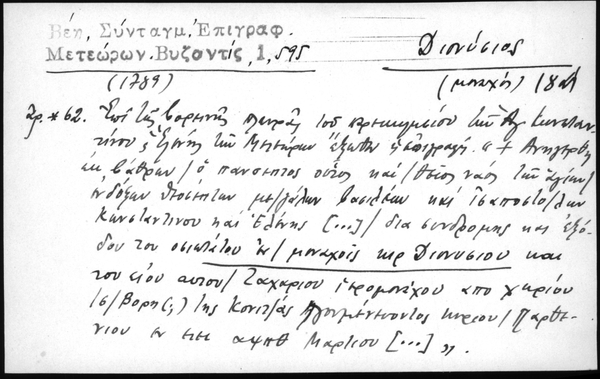 Βέη, Σύνταγμ. Ἐπιγραφ.
Μετεώρων. Βυζαντίς, 1, 595
Διονύσιος
(1789)
(μοναχός) 18ος
Ἀρ. * 62. Ἐπὶ τῆς βορεινῆς πλευρᾶς τοῦ τῶν Ἁγ. Κωνσταν-
τίνου & Ἑλένης τῶν Μετεώρων ἔξωθεν ἡ ἐπιγραφή. "+ Ανηγερθη
εκ βάθρων / ὁ πανσεπτος οὗτος καὶ / θεῖος ναὸς τῶν ἁγίων /
ενδόξων θεοστεπτων με/γάλων βασιλέων καὶ ἰσαποστό/λων
Κωνσταντινου καὶ Ἑλένης [...] / δια συνδρομης και εξό-
δου του οσιωτάτου ἐν / μοναχοῖς κυρ Διονυσιου και
του αυτου / Ζαχαριου ἱερομονάχου απο χωρίου
/ς / Βορη(;) της Κονιτζάς ηγουμενευοντος κυριου / Παρθε-
νιου εν ετει αψπθ Μαρτιου [...] ".